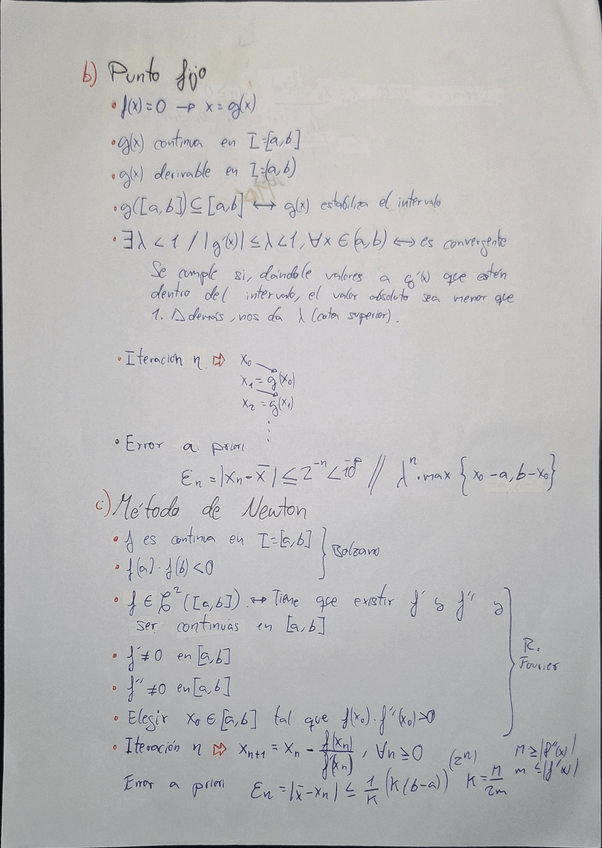 b) Punto fijo
• f(x)=0 → x=g(x)
• g(x) continua en I=[a,b]
• g(x) derivable en I=(a,b)
• g([a,b])⊆[a,b] ↔ g(x) estabiliza el intervalo
• ∃λ<1 / |g'(x)|≤λ<1, ∀x∈(a,b) ↔ es convergente
Se cumple si, dándole valores a g'(x) que estén
dentro del intervalo, el valor absoluto sea menor que
1. Además, nos da λ (cota superior).
• Iteración n ⇨ x₀
x₁=g(x₀)
x₂=g(x₁)
⋮
• Error a priori
Ɛₙ=|xₙ-x̄|≤2⁻ⁿ<10⁻ᵖ // λⁿ·max{x₀-a,b-x₀}
c) Método de Newton
• f es continua en I=[a,b] } Bolzano
• f(a)·f(b)<0
• f∈C²([a,b]) ↔ Tiene que existir f' y f'' y
ser continuas en [a,b]
• f'≠0 en [a,b]
• f''≠0 en [a,b]
} R. Fourier
• Elegir x₀∈[a,b] tal que f(x₀)·f''(x₀)>0
• Iteración n ⇨ xₙ₊₁=xₙ-f(xₙ)/f'(xₙ), ∀n≥0
M≥|f''(x)|
m≤|f'(x)|
Error a priori Ɛₙ=|x̄-xₙ|≤1/K (K(b-a))^(2ⁿ) K=M/2m